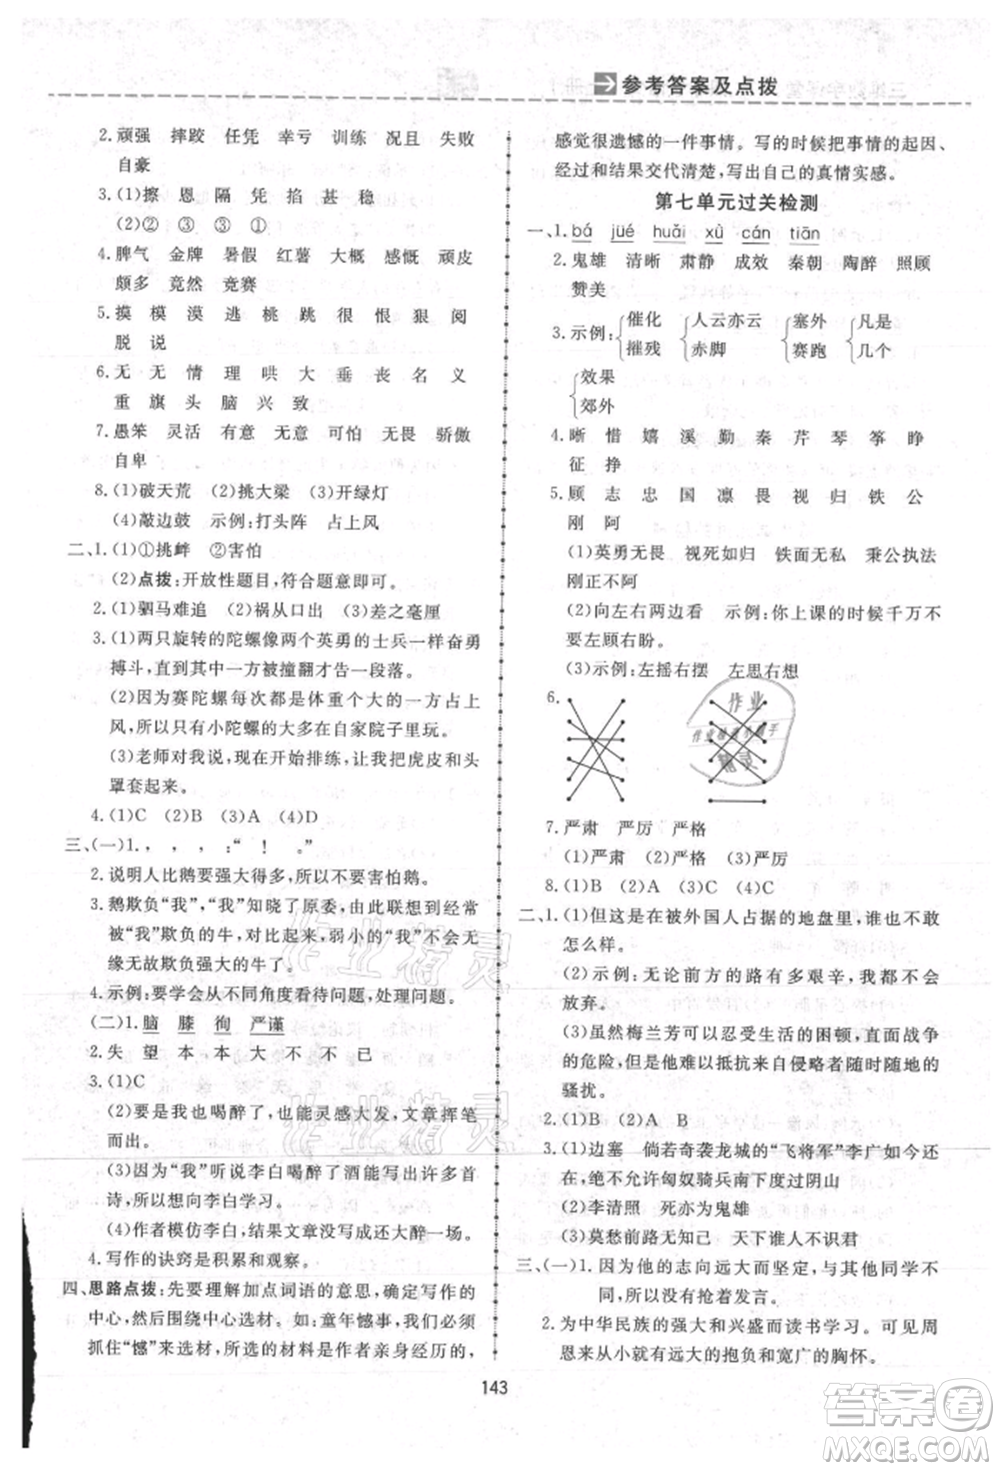 参考答案及点拨
2.顽强 摔跤 任凭 幸亏 训练 况且 失败
自豪
3.(1)擦 恩 隔 凭 掐 甚 稳
(2)② ③ ③ ① ①
4.脾气 金牌 暑假 红薯 感慨 顽皮
颇多 竟然 竞赛
5.摸 模 漠 逃 桃 跳 很 恨 狠 阅
脱 说
6.无 无 情 理 哄 大 垂 丧 名 义
重 旗 头 脑 兴 致
7.愚笨 灵活 有意 无意 可怕 无畏 骄傲
自卑
8.(1)破天荒 (2)挑大梁 (3)开绿灯
(4)敲边鼓 示例:打头阵 占上风
二、1.(1)①挑衅 ②害怕
(2)点拨:开放性题目,符合题意即可。
2.(1)驷马难追 (2)祸从口出 (3)差之毫厘
3.(1)两只旋转的陀螺像两个英勇的士兵一样奋勇
搏斗,直到其中一方被撞翻才告一段落。
(2)因为赛陀螺每次都是体重个大的占上
风,所以削小陀螺的大多在自家院子里玩。
(3)老师对我说,今天开始排练,让我把虎皮和头
罩套起来。
4.(1)C (2)B (3)A (4)D
三、(一)1.， , ， :“ ！ 。”
2.说明人比鹅要强大,不要害怕鹅。
3.鹅欺负“我”,“我”知晓了原委,由此联想到经常
被“我”欺负的牛,对比起来,弱小的“我”今后无
缘无故欺负强大的牛了。
4.示例:要学会从不同角度看待问题,处理问题。
(二)1.脑 膝 徇 严谨
2.失 望 本 本 大 不 不 已
3.(1)C
(2)要是我也喝醉了,也能灵感大发,文章挥笔
而出。
(3)因为“我”听说李白喝醉了酒能写出许多首
诗,所以想向李白学习。
(4)作者模仿李白,结果文章没写成还大醉一场。
4.写作的诀窍是积累和观察。
四、思路点拨:先要理解加点词语的意思,确定写作的
中心,然后围绕中心选材。如:童年憾事,我们必须
抓住“憾”来选材,所选的材料是作者亲身经历的,
感觉很遗憾的一件事情。写的时候把事情的起因、
经过和结果交代清楚,写出自己的真情实感。
第七单元过关检测
一、1.bá jué huǎi xù cán tiān
2.鬼雄 清晰 肃静 成效 秦朝 陶醉 照顾
赞美
3.示例: 催化 人云亦云 塞外 凡是
摧残 赤脚 赛跑 几个
效果
郊外
4.晰 惜 嬉 溪 勤 秦 芹 琴 筝 睁
征 挣
5.顾 志 忠 国 凛 畏 视 归 铁 公
刚 阿
(1)英勇无畏 视死如归 铁面无私 秉公执法
刚正不阿
(2)向左右两边看 示例:你上课的时候千万不
要左顾右盼。
(3)示例:左摇右摆 左思右想
6.
7.严肃 严厉 严格
(1)严肃 (2)严格 (3)严厉
8.(1)B (2)A (3)C
二、1.(1)但这是在被外国人占据的地盘里,谁也不敢
怎么样。
(2)示例:无论前方的路有多艰辛,我也不能
放弃。
(3)虽然梅兰芳可以忍受生活的困顿,直面战争
的危险,但是他难以抵抗来自侵略者随时随地的
骚扰。
2.(1)B (2)A B
3.(1)边塞 倘若奇袭龙城的“飞将军”李广如今还
在,绝不允许匈奴骑兵南下度过阴山
(2)李清照 死亦为鬼雄
(3)莫愁前路无知己 天下谁人不识君
三、(一)1.因为他的志向与其他同学的志向是不
同的,所以没有抢着发言。
2.为中华民族的强大和兴盛而读书学习。可见周
恩来从小就有远大的抱负和宽广的胸怀。
143
作业精灵
作业精灵
作业
精灵
答案圈
MXQE.COM